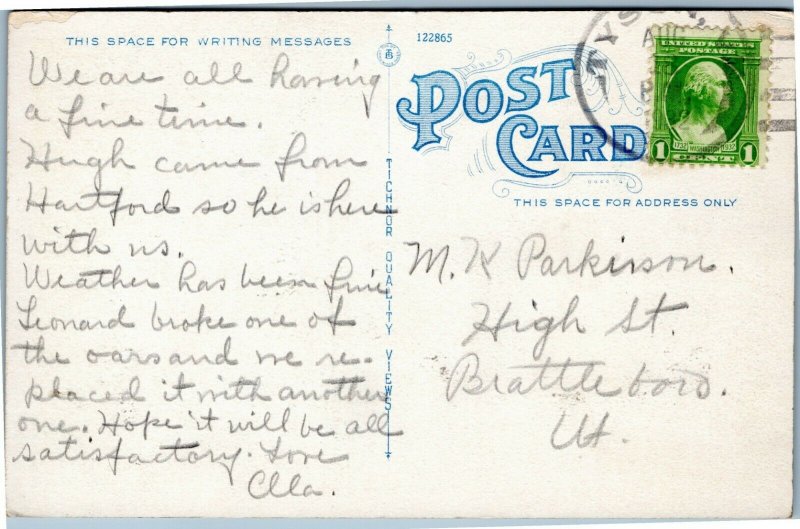 THIS SPACE FOR WRITING MESSAGES
We are all having
a fine time.
Hugh came from
Hartford so he is here
with us.
Weather has been fine
Leonard broke one of
the oars and we re-
placed it with another
one. Hope it will be all
satisfactory. Love
Ella.
TICHNOR QUALITY VIEWS
122865
POST
CARD
THIS SPACE FOR ADDRESS ONLY
AUG
UNITED STATES POSTAGE
1732 WASHINGTON 1932
1 CENT 1
M. K Parkinson.
High St.
Brattleboro.
Vt.